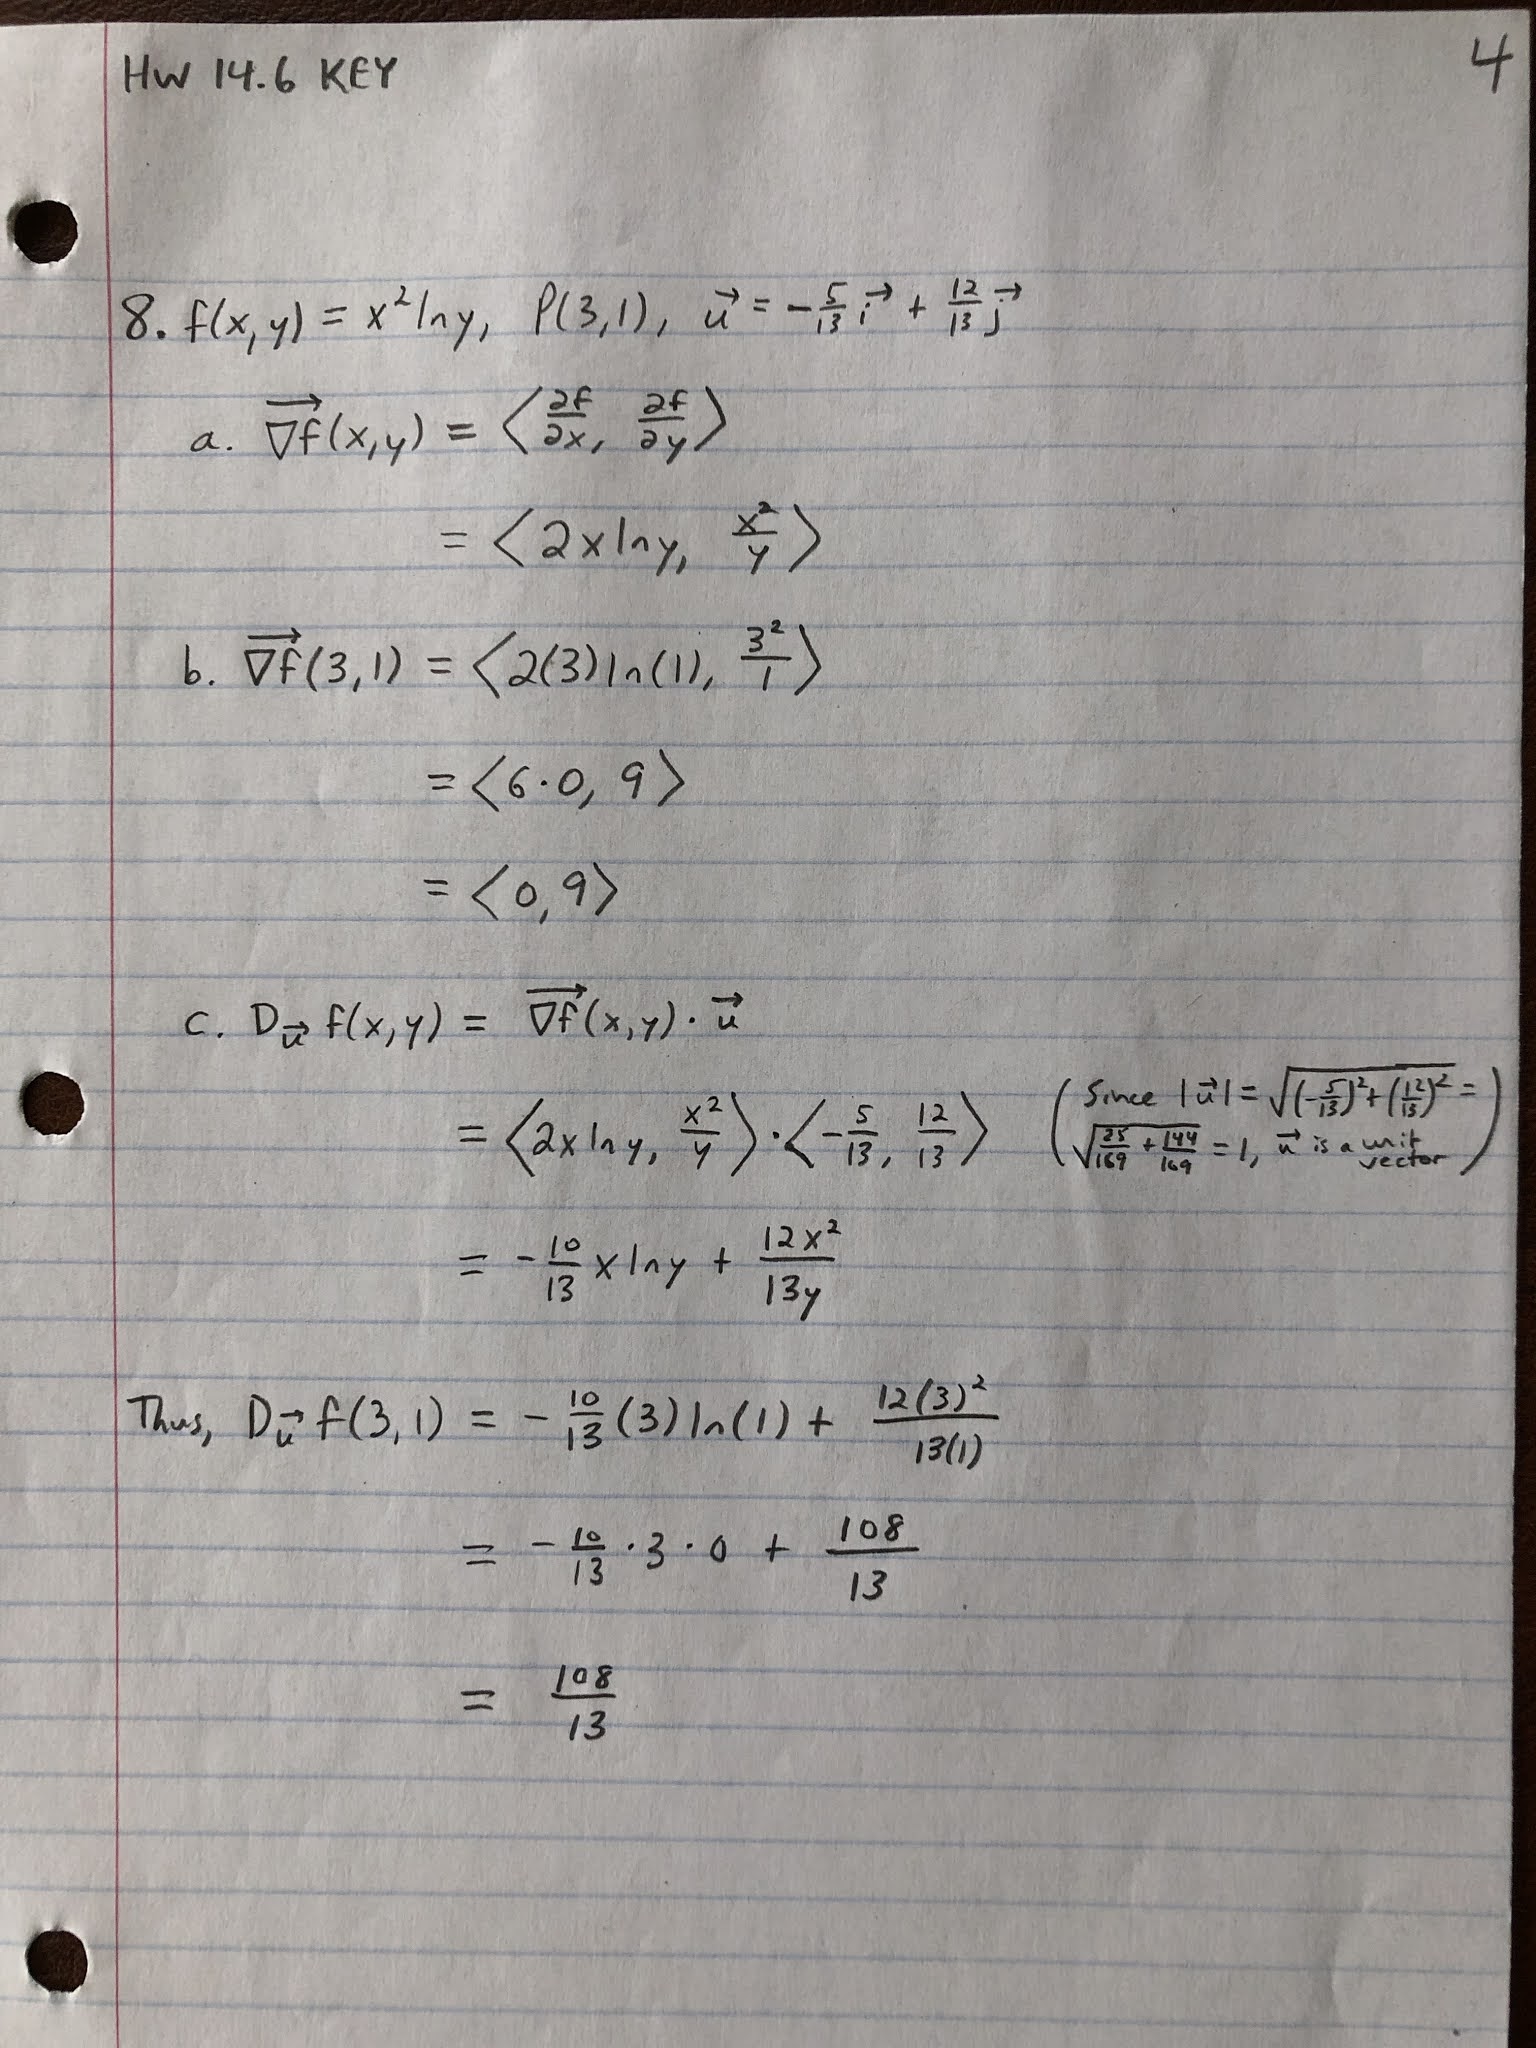 HW 14.6 KEY 4
8. f(x,y) = x² ln y, P(3,1), u⃗ = -5/13 i⃗ + 12/13 j⃗
a. ∇f⃗(x,y) = ⟨∂f/∂x, ∂f/∂y⟩
= ⟨2x ln y, x²/y⟩
b. ∇f⃗(3,1) = ⟨2(3) ln(1), 3²/1⟩
= ⟨6·0, 9⟩
= ⟨0,9⟩
c. D_u⃗ f(x,y) = ∇f⃗(x,y)·u⃗
= ⟨2x ln y, x²/y⟩·⟨-5/13, 12/13⟩ (Since |u⃗| = √((-5/13)² + (12/13)²) =
√(25/169 + 144/169) = 1, u⃗ is a unit vector)
= -10/13 x ln y + 12x²/13y
Thus, D_u⃗ f(3,1) = -10/13 (3) ln(1) + 12(3)²/13(1)
= -10/13 · 3 · 0 + 108/13
= 108/13